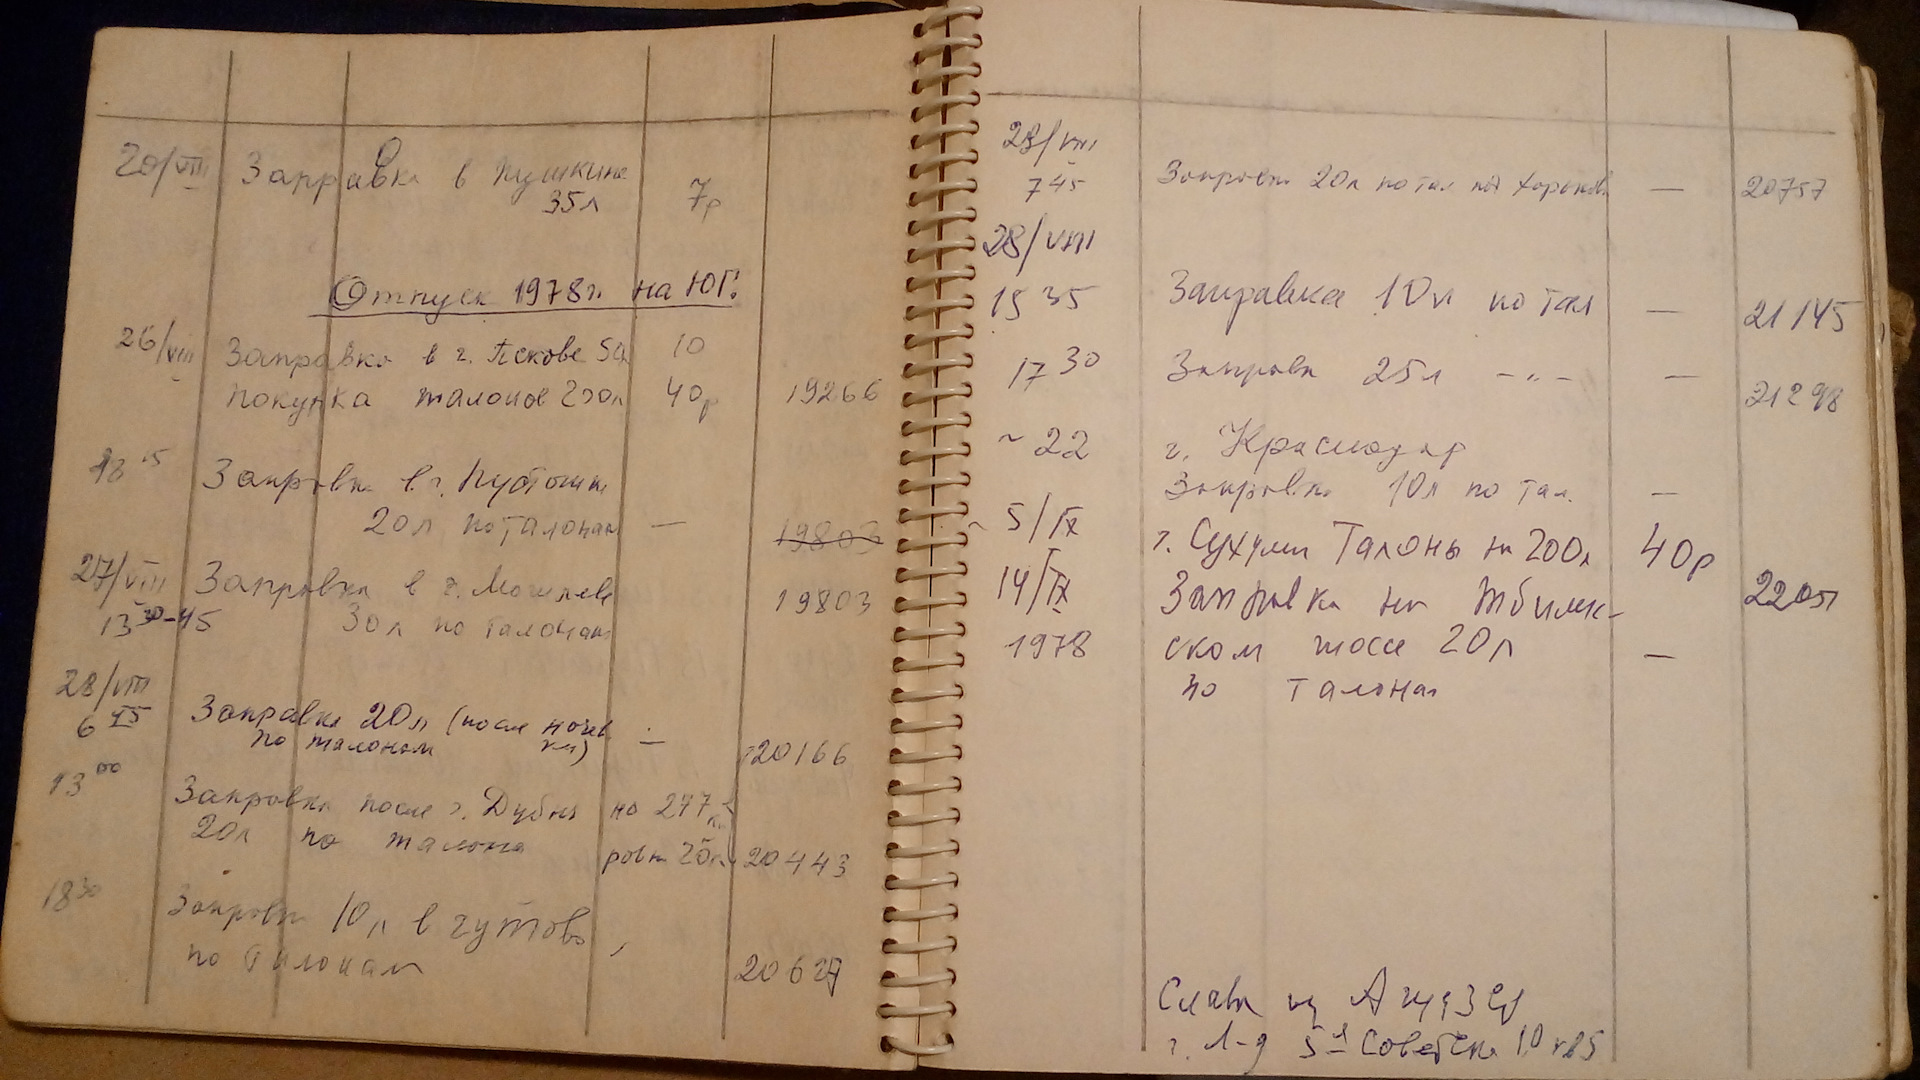 20/VIII Заправка в Пушкине
35л 7р
Отпуск 1978г. на ЮГ!
26/VIII Заправка в г. Пскове 50л 10
покупка талонов 200л 40р 19266
Заправка в г. Пустошк
20л по талонам — 19803
27/VIII Заправка в г. Могилеве 19803
13 30-45 30л по талонам
28/VIII
6 45 Заправка 20л (после ночев
по талонам ки) — 20166
13 00
Заправка после г. Дубны на 277 км
20л по талона ровн 20л 20443
18 30 Заправка 10л в
по талонам 20627
28/VIII
7 45 Заправка 20л по тал под Харьков. — 20757
28/VIII
15 35 Заправка 10л по тал — 21145
17 30 Заправка 25л -"- — 21298
~22 г. Краснодар
Заправка 10л по тал. —
~5/IX г. Сухуми Талоны на 200л 40р
14/IX Заправка на Тбилис- 22051
1978 ском шоссе 20л —
по талонам
Слава из
г. Л-д 5я Советская 10 кв5